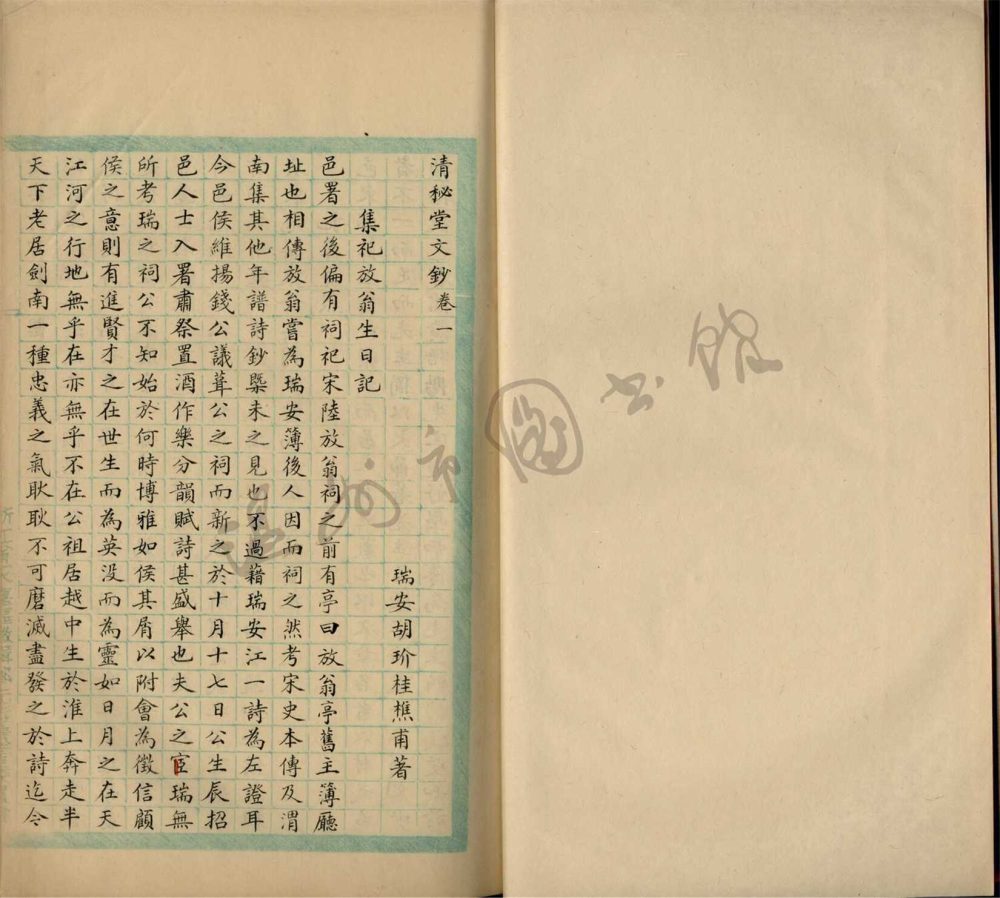 清秘堂文鈔卷一
瑞安胡玠桂樵甫著
集祀放翁生日記
邑署之後偏有祠祀宋陸放翁祠之前有亭曰放翁亭舊主簿廳
址也相傳放翁嘗為瑞安簿後人因而祠之然考宋史本傳及渭
南集其他年譜詩鈔槩未之見也不過藉瑞安江一詩為左證耳
今邑侯維揚錢公議葺公之祠而新之於十月十七日公生辰招
邑人士入署肅祭置酒作樂分韻賦詩甚盛舉也夫公之宦瑞無
所考瑞之祠公不知始於何時博雅如侯其屑以附會為徵信顧
侯之意則有進賢才之在世生而為英没而為靈如日月之在天
江河之行地無乎在亦無乎不在公祖居越中生於淮上奔走半
天下老居劍南一種忠義之氣耿耿不可磨滅盡發之於詩迄今
温州市圖书館